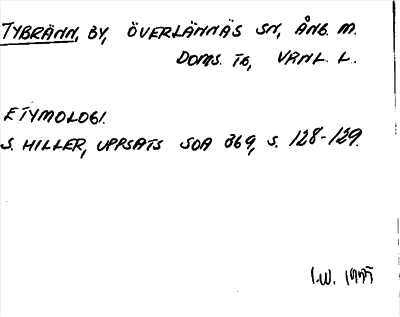 TYBRÄNN, BY, ÖVERLÄNNÄS SN, ÅNG. M.
DOMS. TB, VANL. L.
ETYMOLOGI.
S. HILLER, UPPSATS SOA 369, S. 128-129.
I.W. 1995